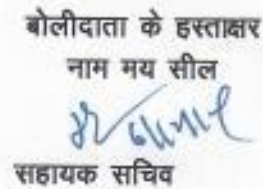 बोलीदाता के हस्ताक्षर
नाम मय सील
सहायक सचिव